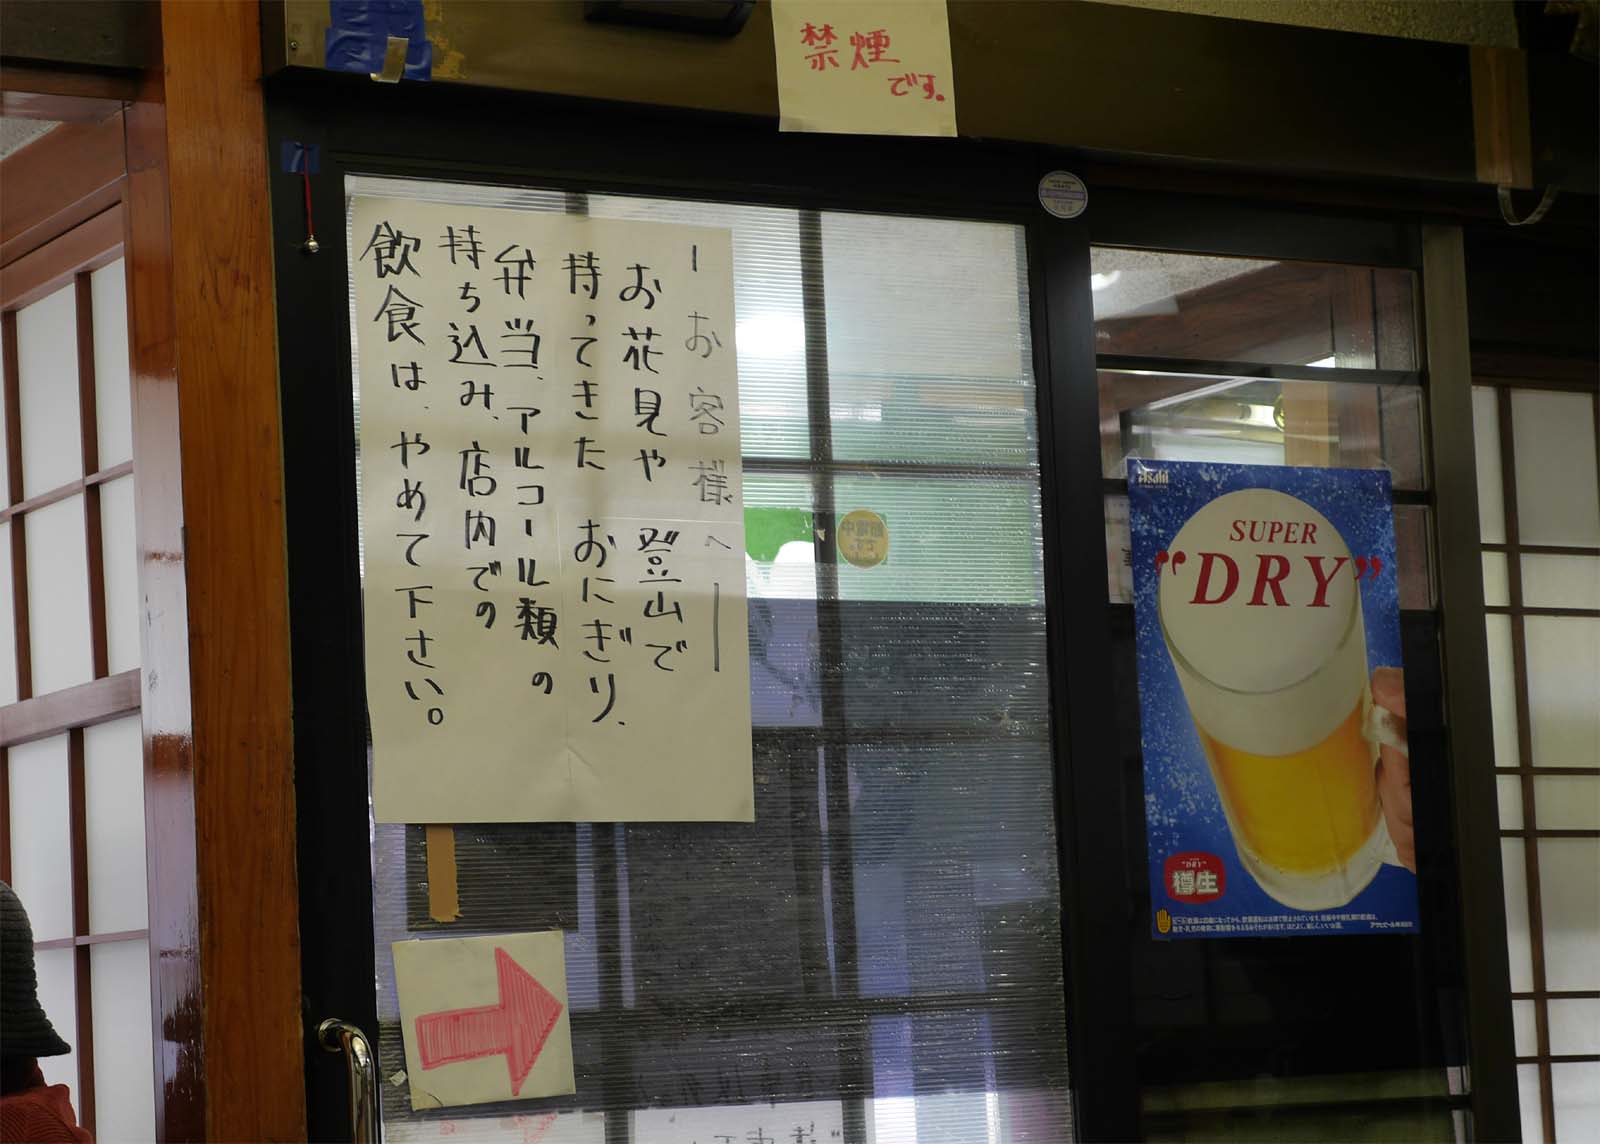 禁煙
です。
ーお客様へー
お花見や登山で
持ってきたおにぎり、
弁当、アルコール類の
持ち込み、店内での
飲食は、やめて下さい。
Asahi
SUPER
"DRY"
"DRY"
樽生
アサヒビール株式会社